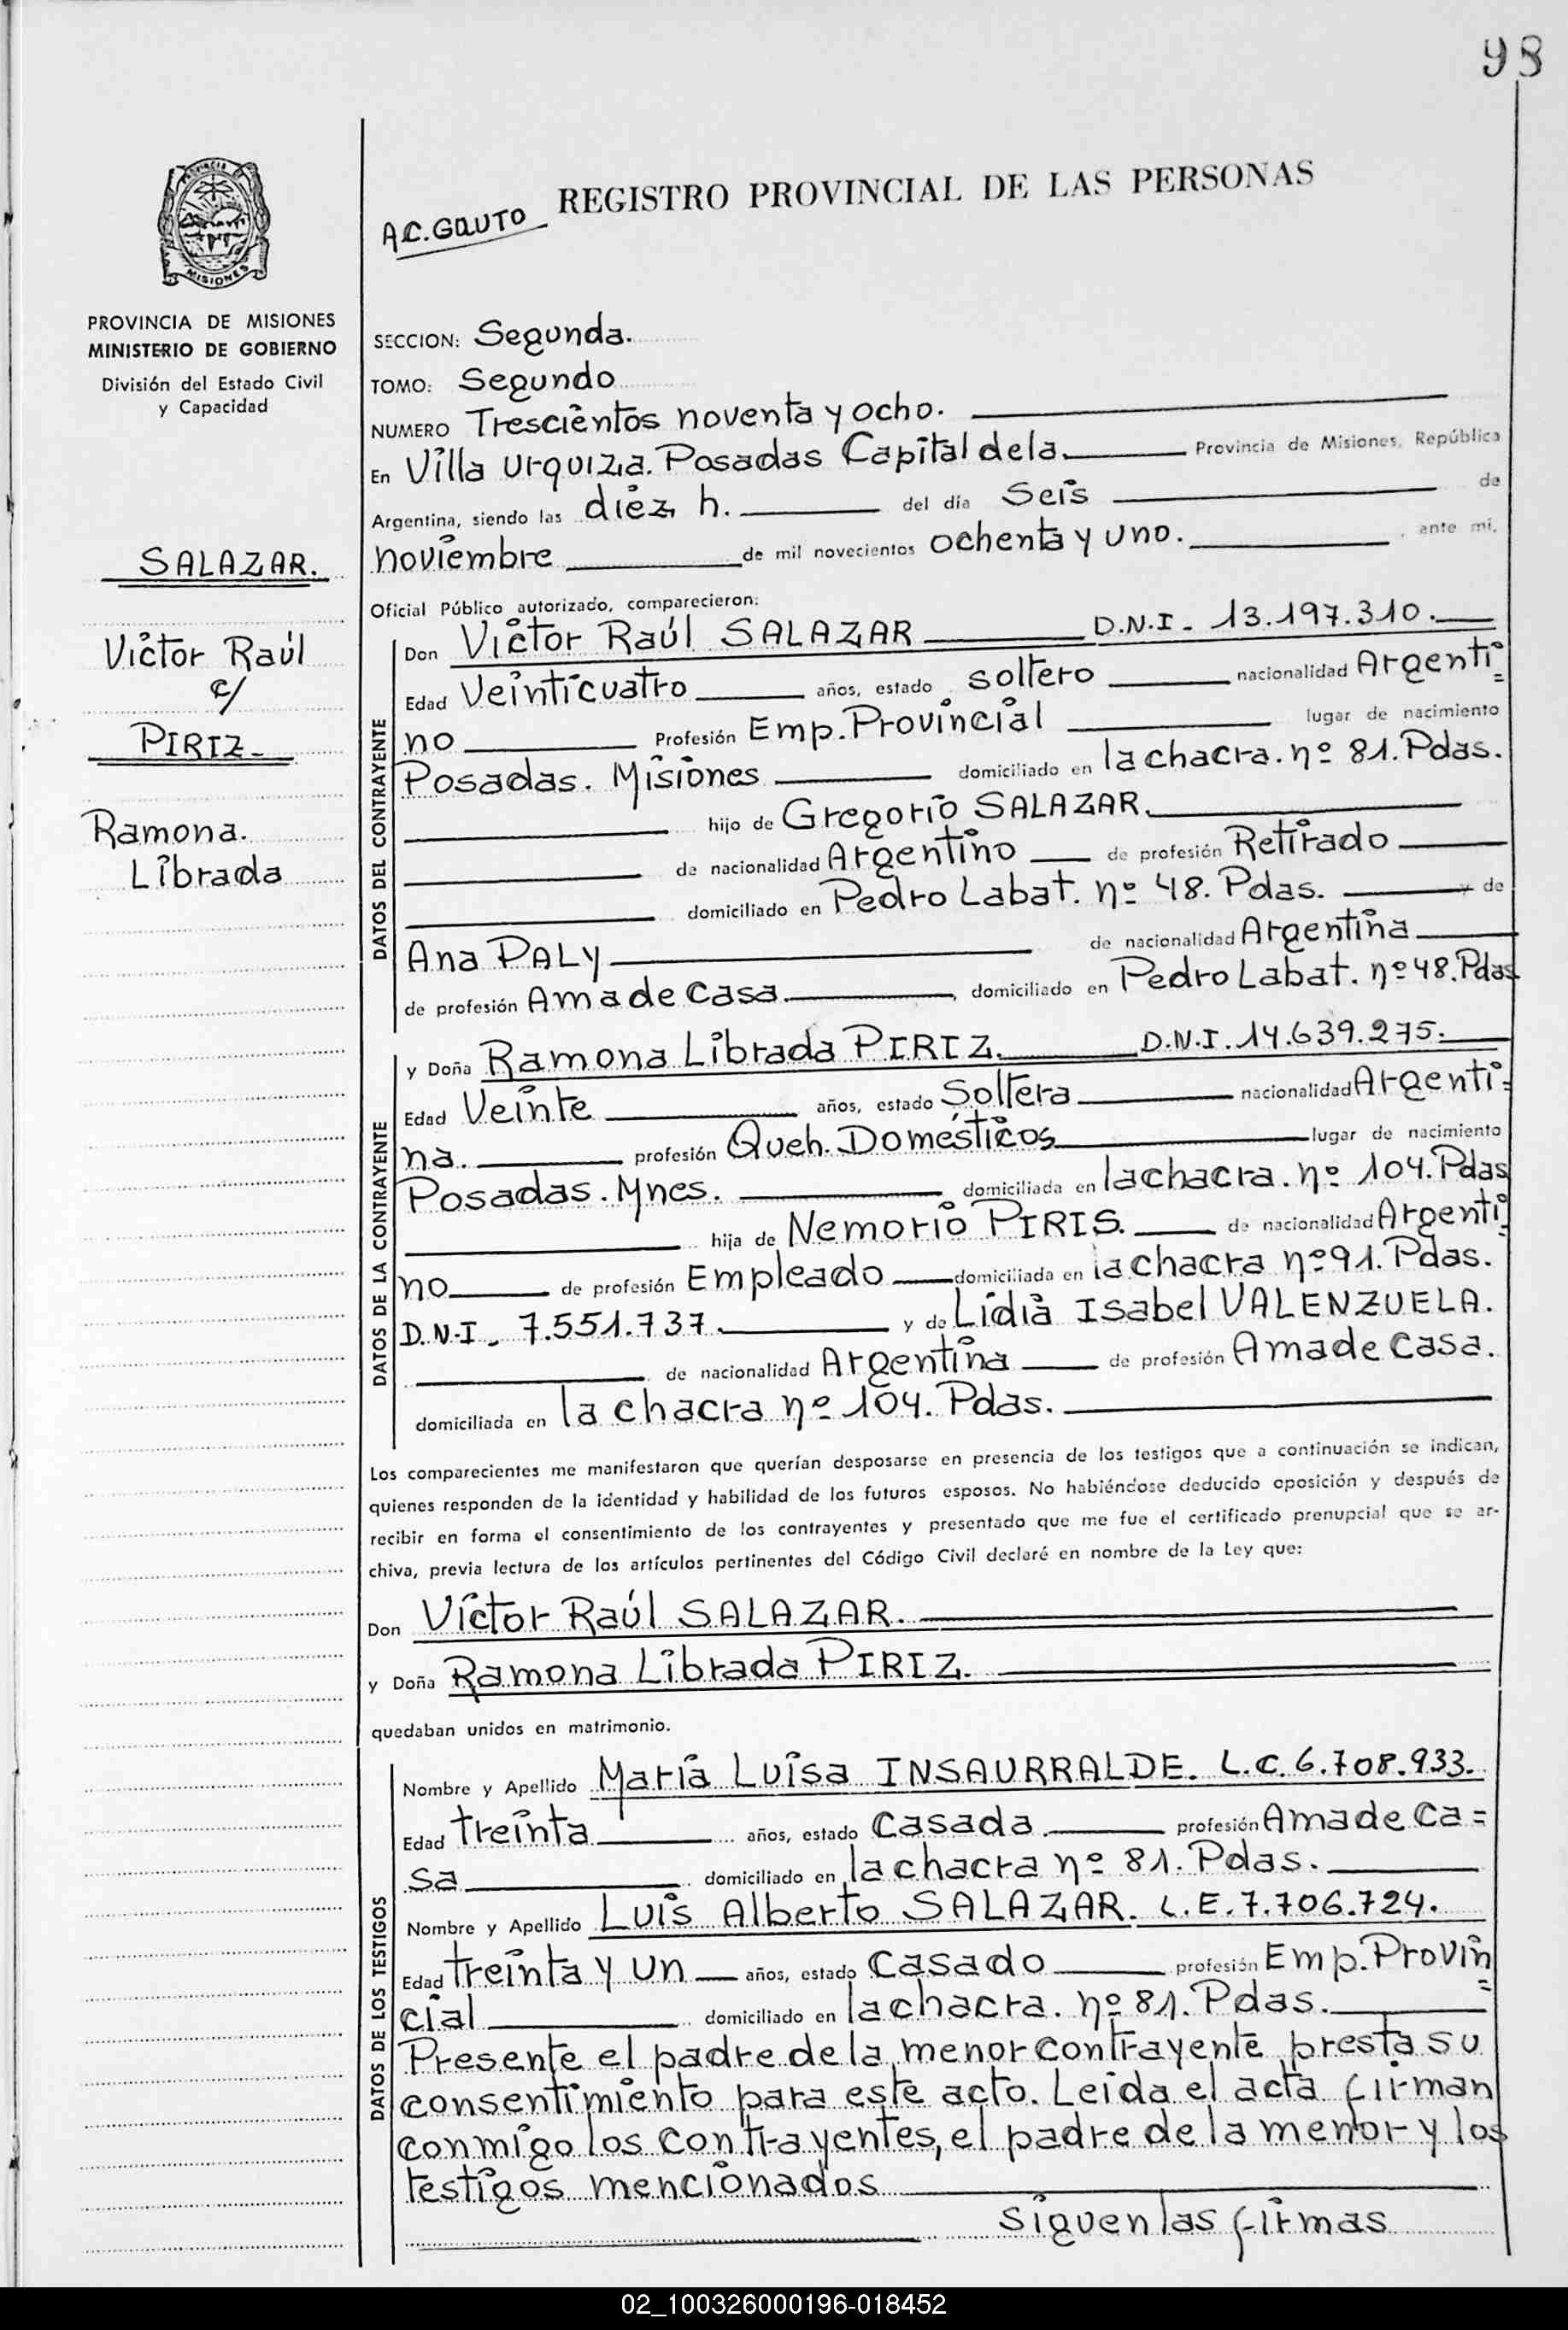 98
PROVINCIA
MISIONES
PROVINCIA DE MISIONES
MINISTERIO DE GOBIERNO
División del Estado Civil
y Capacidad
SALAZAR.
Victor Raúl
c/
PIRIZ-
Ramona.
Librada
A.C. GAUTO
REGISTRO PROVINCIAL DE LAS PERSONAS
SECCION: Segunda.
TOMO: Segundo
NUMERO Trescientos noventa y ocho.
En Villa Urquiza. Posadas Capital de la. Provincia de Misiones, República
Argentina, siendo las diez h. del día Seis de
noviembre de mil novecientos ochenta y uno. , ante mi,
Oficial Público autorizado, comparecieron:
DATOS DEL CONTRAYENTE
Don Victor Raúl SALAZAR D.N.I - 13.197.310.
Edad Veinticuatro años, estado soltero nacionalidad Argenti=
no Profesión Emp. Provincial lugar de nacimiento
Posadas. Misiones domiciliado en la chacra. nº 81. Pdas.
hijo de Gregorio SALAZAR.
de nacionalidad Argentino de profesión Retirado
domiciliado en Pedro Labat. nº 48. Pdas. y de
Ana PALY de nacionalidad Argentina
de profesión Ama de Casa. , domiciliado en Pedro Labat. nº 48. Pdas
DATOS DE LA CONTRAYENTE
y Doña Ramona Librada PIRIZ. D.N.I. 14.639.275.
Edad Veinte años, estado Soltera nacionalidad Argenti=
na. profesión Queh. Domésticos lugar de nacimiento
Posadas. Mnes. domiciliada en la chacra. nº 104. Pdas
hija de Nemorio PIRIS. de nacionalidad Argenti=
no de profesión Empleado domiciliada en la chacra nº 91. Pdas.
D.N.I - 7.551.737. y de Lidia Isabel VALENZUELA.
de nacionalidad Argentina de profesión Ama de Casa.
domiciliada en la chacra nº 104. Pdas.
Los comparecientes me manifestaron que querían desposarse en presencia de los testigos que a continuación se indican,
quienes responden de la identidad y habilidad de los futuros esposos. No habiéndose deducido oposición y después de
recibir en forma el consentimiento de los contrayentes y presentado que me fue el certificado prenupcial que se ar-
chiva, previa lectura de los artículos pertinentes del Código Civil declaré en nombre de la Ley que:
Don Víctor Raúl SALAZAR.
y Doña Ramona Librada PIRIZ.
quedaban unidos en matrimonio.
DATOS DE LOS TESTIGOS
Nombre y Apellido María Luisa INSAURRALDE. L.C. 6.708.933.
Edad treinta años, estado Casada. profesión Ama de Ca=
sa domiciliado en la chacra nº 81. Pdas.
Nombre y Apellido Luis Alberto SALAZAR. L.E. 7.706.724.
Edad treinta y un años, estado Casado profesión Emp. Provin=
cial domiciliado en la chacra. nº 81. Pdas.
Presente el padre de la menor contrayente presta su
consentimiento para este acto. Leida el acta firman
conmigo los contrayentes, el padre de la menor y los
testigos mencionados
Siguen las firmas
02_100326000196-018452